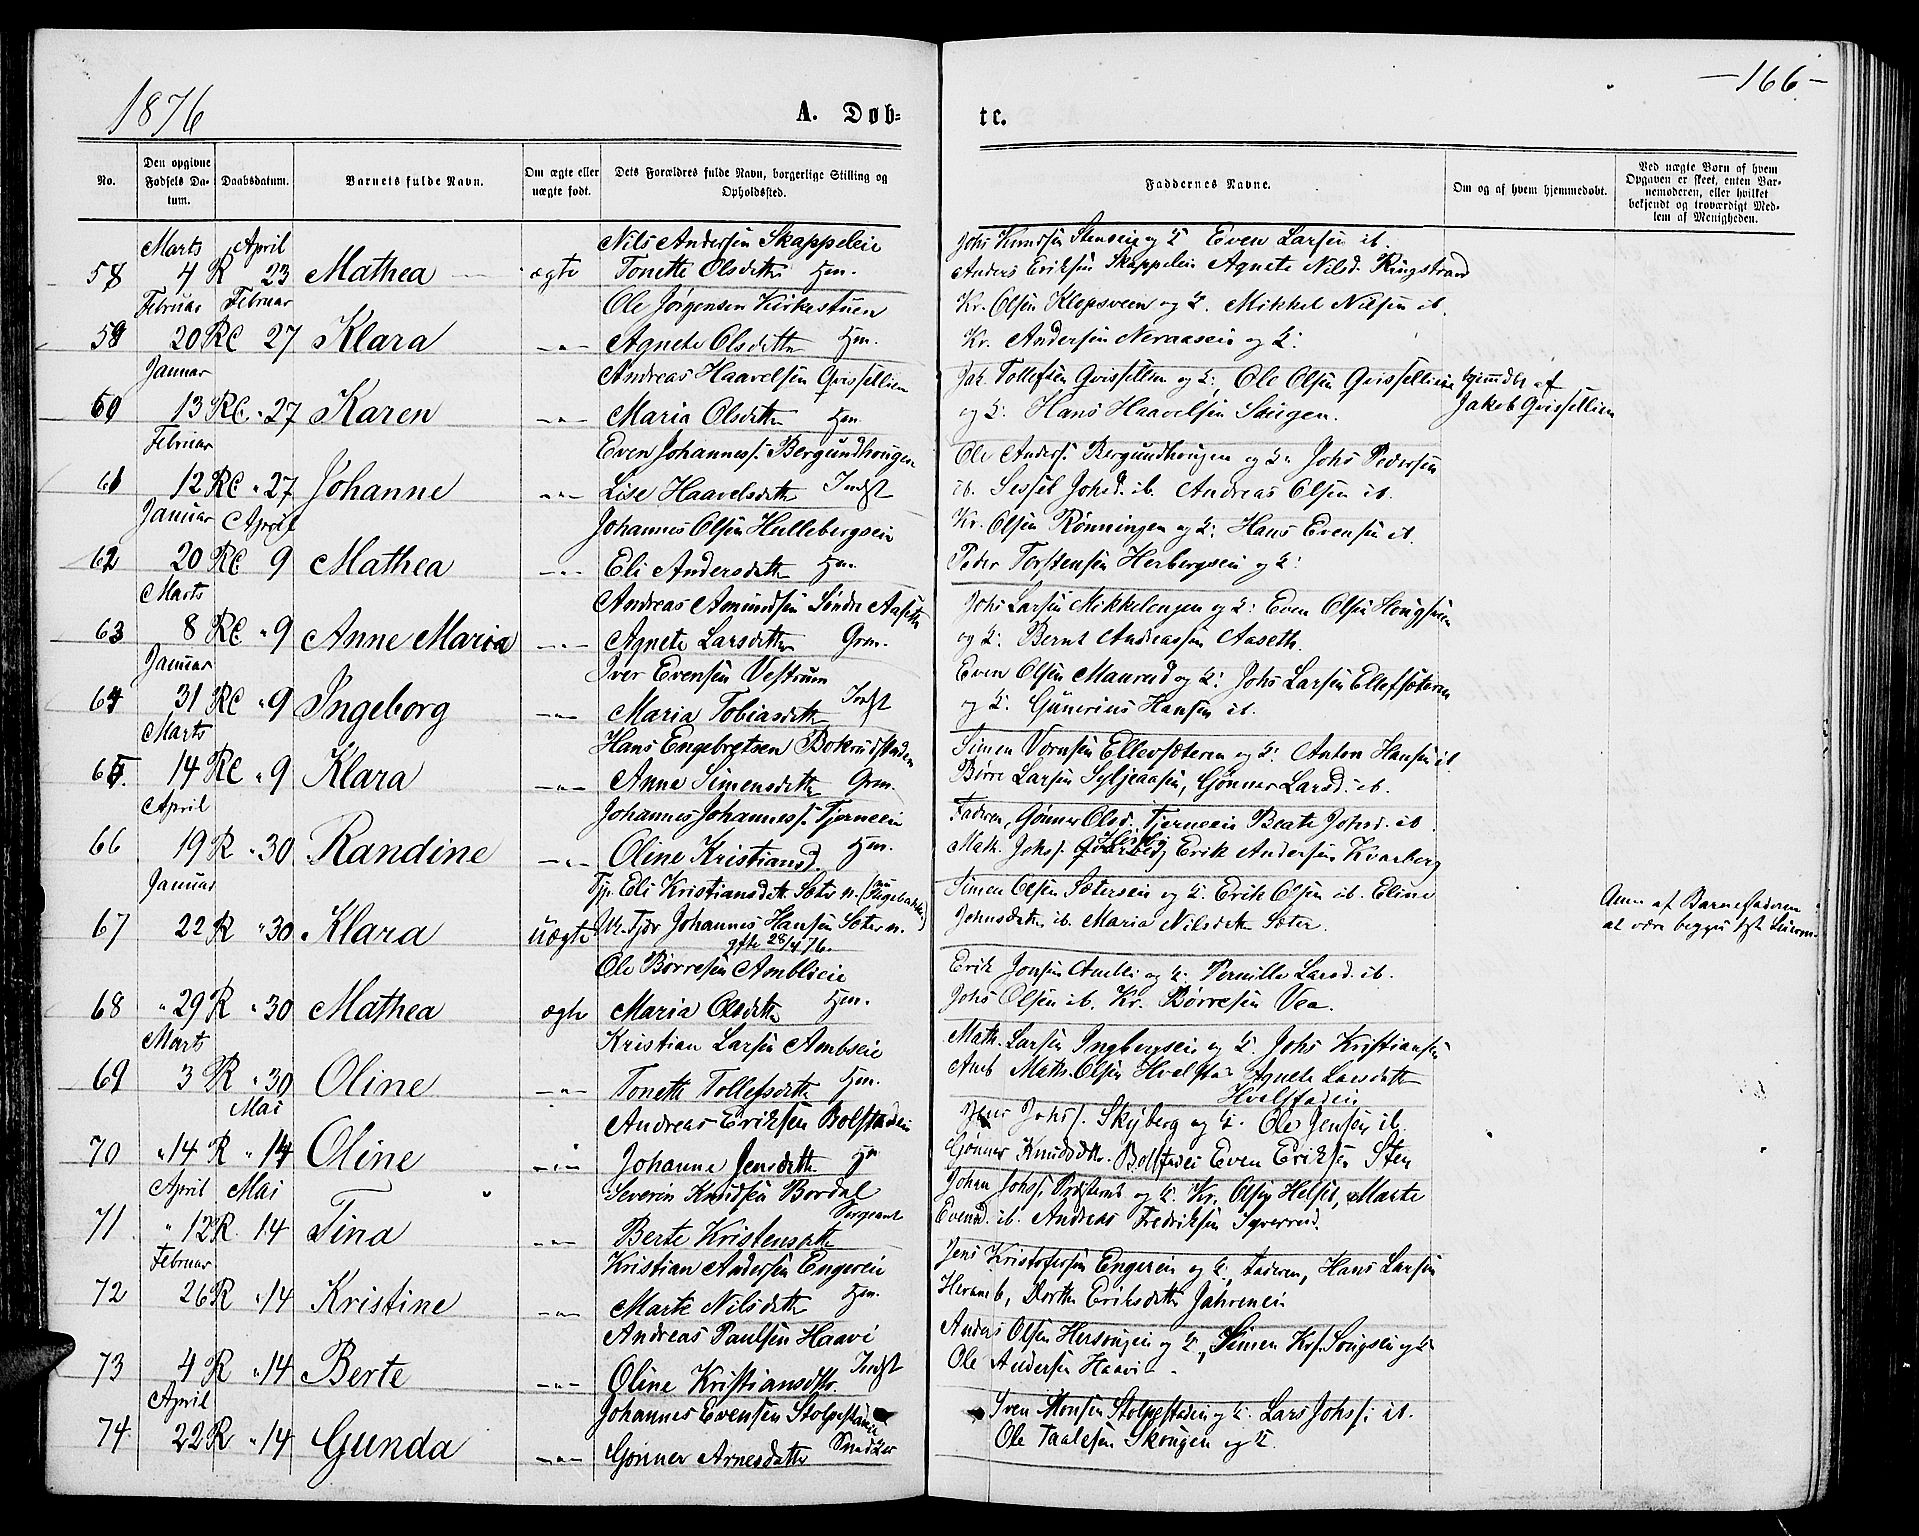 1876
A. Døb-
te.
-166-
No.
Den opgivne Fødsels Datum.
Daabsdatum.
Barnets fulde Navn.
Om ægte eller uægte født.
Dets Forældres fulde Navn, borgerlige Stilling og Opholdssted.
Faddernes Navne.
Om og af hvem hjemmedøbt.
Ved uægte Børn af hvem Opgaven er skeet, enten Barnemoderen, eller hvilket bekjendt og troværdigt Medlem af Menigheden.
Marts April Nils Andersen Skappeleie Even Larsen ib.
58 4 R 23 Mathea ægte Tonette Olsdatter Hm. Anders Eriksen Skappeleie Agnete Nilsd. Ringstrand
Februar Februar Ole Jørgensen Kirkestuen Kr. Olsen Klepsveen og K. Mikkel Nilsen ib.
59 20 RC 27 Klara -"- Agnete Olsdatter Hm. Kr. Andersen Neraaseie og K.
Januar Andreas Haavelsen Gvissellien Jak. Tollefsen Gvissellien og K. Ole Olsen Gvissellien hjemdbt af
60 13 RC " 27 Karen -"- Maria Olsdatter Hm. og K. Hans Haavelsen Saugen. Jakob Gvissellien
Februar Even Johanness. Bergundhougen Ole Anders. Bergundhougen og K. Johs Pedersen
61 12 RC " 27 Johanne -"- Lise Haavelsdatter Indst ib. Sessel Johsd. ib. Andreas Olsen ib.
Januar April Johannes Olsen Hullebergseie Kr. Olsen Rønningen og K. Hans Evensen ib.
62 20 RC 9 Mathea -"- Eli Andersdatter Hm. Peder Torstensen Herbergseie og K.
Marts Andreas Amundsen Søndre Aaseth Johs Larsen Mikkelengen og K. Even Olsen
63 8 RC " 9 Anne Maria -"- Agnete Larsdatter Grm. og K. Bernt Andreassen Aaseth.
Januar Iver Evensen Vestrum Even Olsen Maurud og K. Johs Larsen Ellefsæteren
64 31 RC " 9 Ingeborg -"- Maria Tobiasdatter Indst og K. Gunerius Hansen ib.
Marts Hans Engebretsen Bokrudstaden Simen Ellevsæteren og K. Anton Hansen ib.
65 14 RC " 9 Klara -"- Anne Simensdatter Grm. Børre Larsen Syljeaasen, Gønner Larsd. ib.
April Johannes Johanness. Tjerneeie Faderen, Gønner Olsd. Tjerneeie Beate Johsd. ib.
66 19 R " 30 Randine -"- Oline Kristiansd. Hm. Math. Johs. Erik Andersen Kvarberg
Januar Tjp. Eli Kristiansdatt. Sæter n. Simen Olsen Sæterseie og K. Erik Olsen ib. Eline
67 22 R " 30 Klara uægte Ur. Tjdr Johannes Hansen Sæter n. gfte 28/4 76. Johnsdatter ib. Maria Nilsdatt. Sæter. Anm. af Barnefaderen at være begges 1ste Leierm.
Ole Børresen Amblieie Erik Jonsen Ambli og K. Pernille Larsd. ib.
68 " 29 R " 30 Mathea ægte Maria Olsdatter Hm. Johs Olsen ib. Kr. Børresen Vea.
Marts Kristian Larsen Ambseie Math. Larsen Ingbergseie og K. Johs Kristiansen
69 3 R " 30 Oline -"- Tonette Tollefsdatter Hm. Amb Math. Olsen Hvelstad Agnete Larsdatter Hvelstadeie
Mai Andreas Eriksen Bolstadeie Jens Johs. Skyberg og K. Ole Jensen ib.
70 " 14 R " 14 Oline -"- Johanne Jensdatter Hm Gønner Knudsdtr. Bolstadeie Even Eriksen Sten
April Mai Severin Knudsen Bordal Johan Johs. Præsterud og K. Kr. Olsen Helset, Marte
71 " 12 R. 14 Tina -"- Berte Kristensdtr Sergeant Evensd. ib. Andreas Fredriksen Syverrud.
Februar Kristian Andersen Engereie Jens Kristofersen Engereie og K., Faderen, Hans Larsen
72 26 R " 14 Kristine -"- Marte Nilsdatter Hm. Heramb, Dorthe Eriksdatter Jahreneie
Andreas Paulsen Haavi Anders Olsen og K., Simen Krs. Songseie og K.
73 4 R " 14 Berte -"- Oline Kristiansdtr. Indst Ole Andersen Haavi.
April Johannes Evensen Stolpestadeie Iven Monsen Stolpestadeie og K. Lars Johs. ib.
74 22 R " 14 Gunda -"- Gønner Arnesdatter Snedker Ole Taalesen Skougen og K.